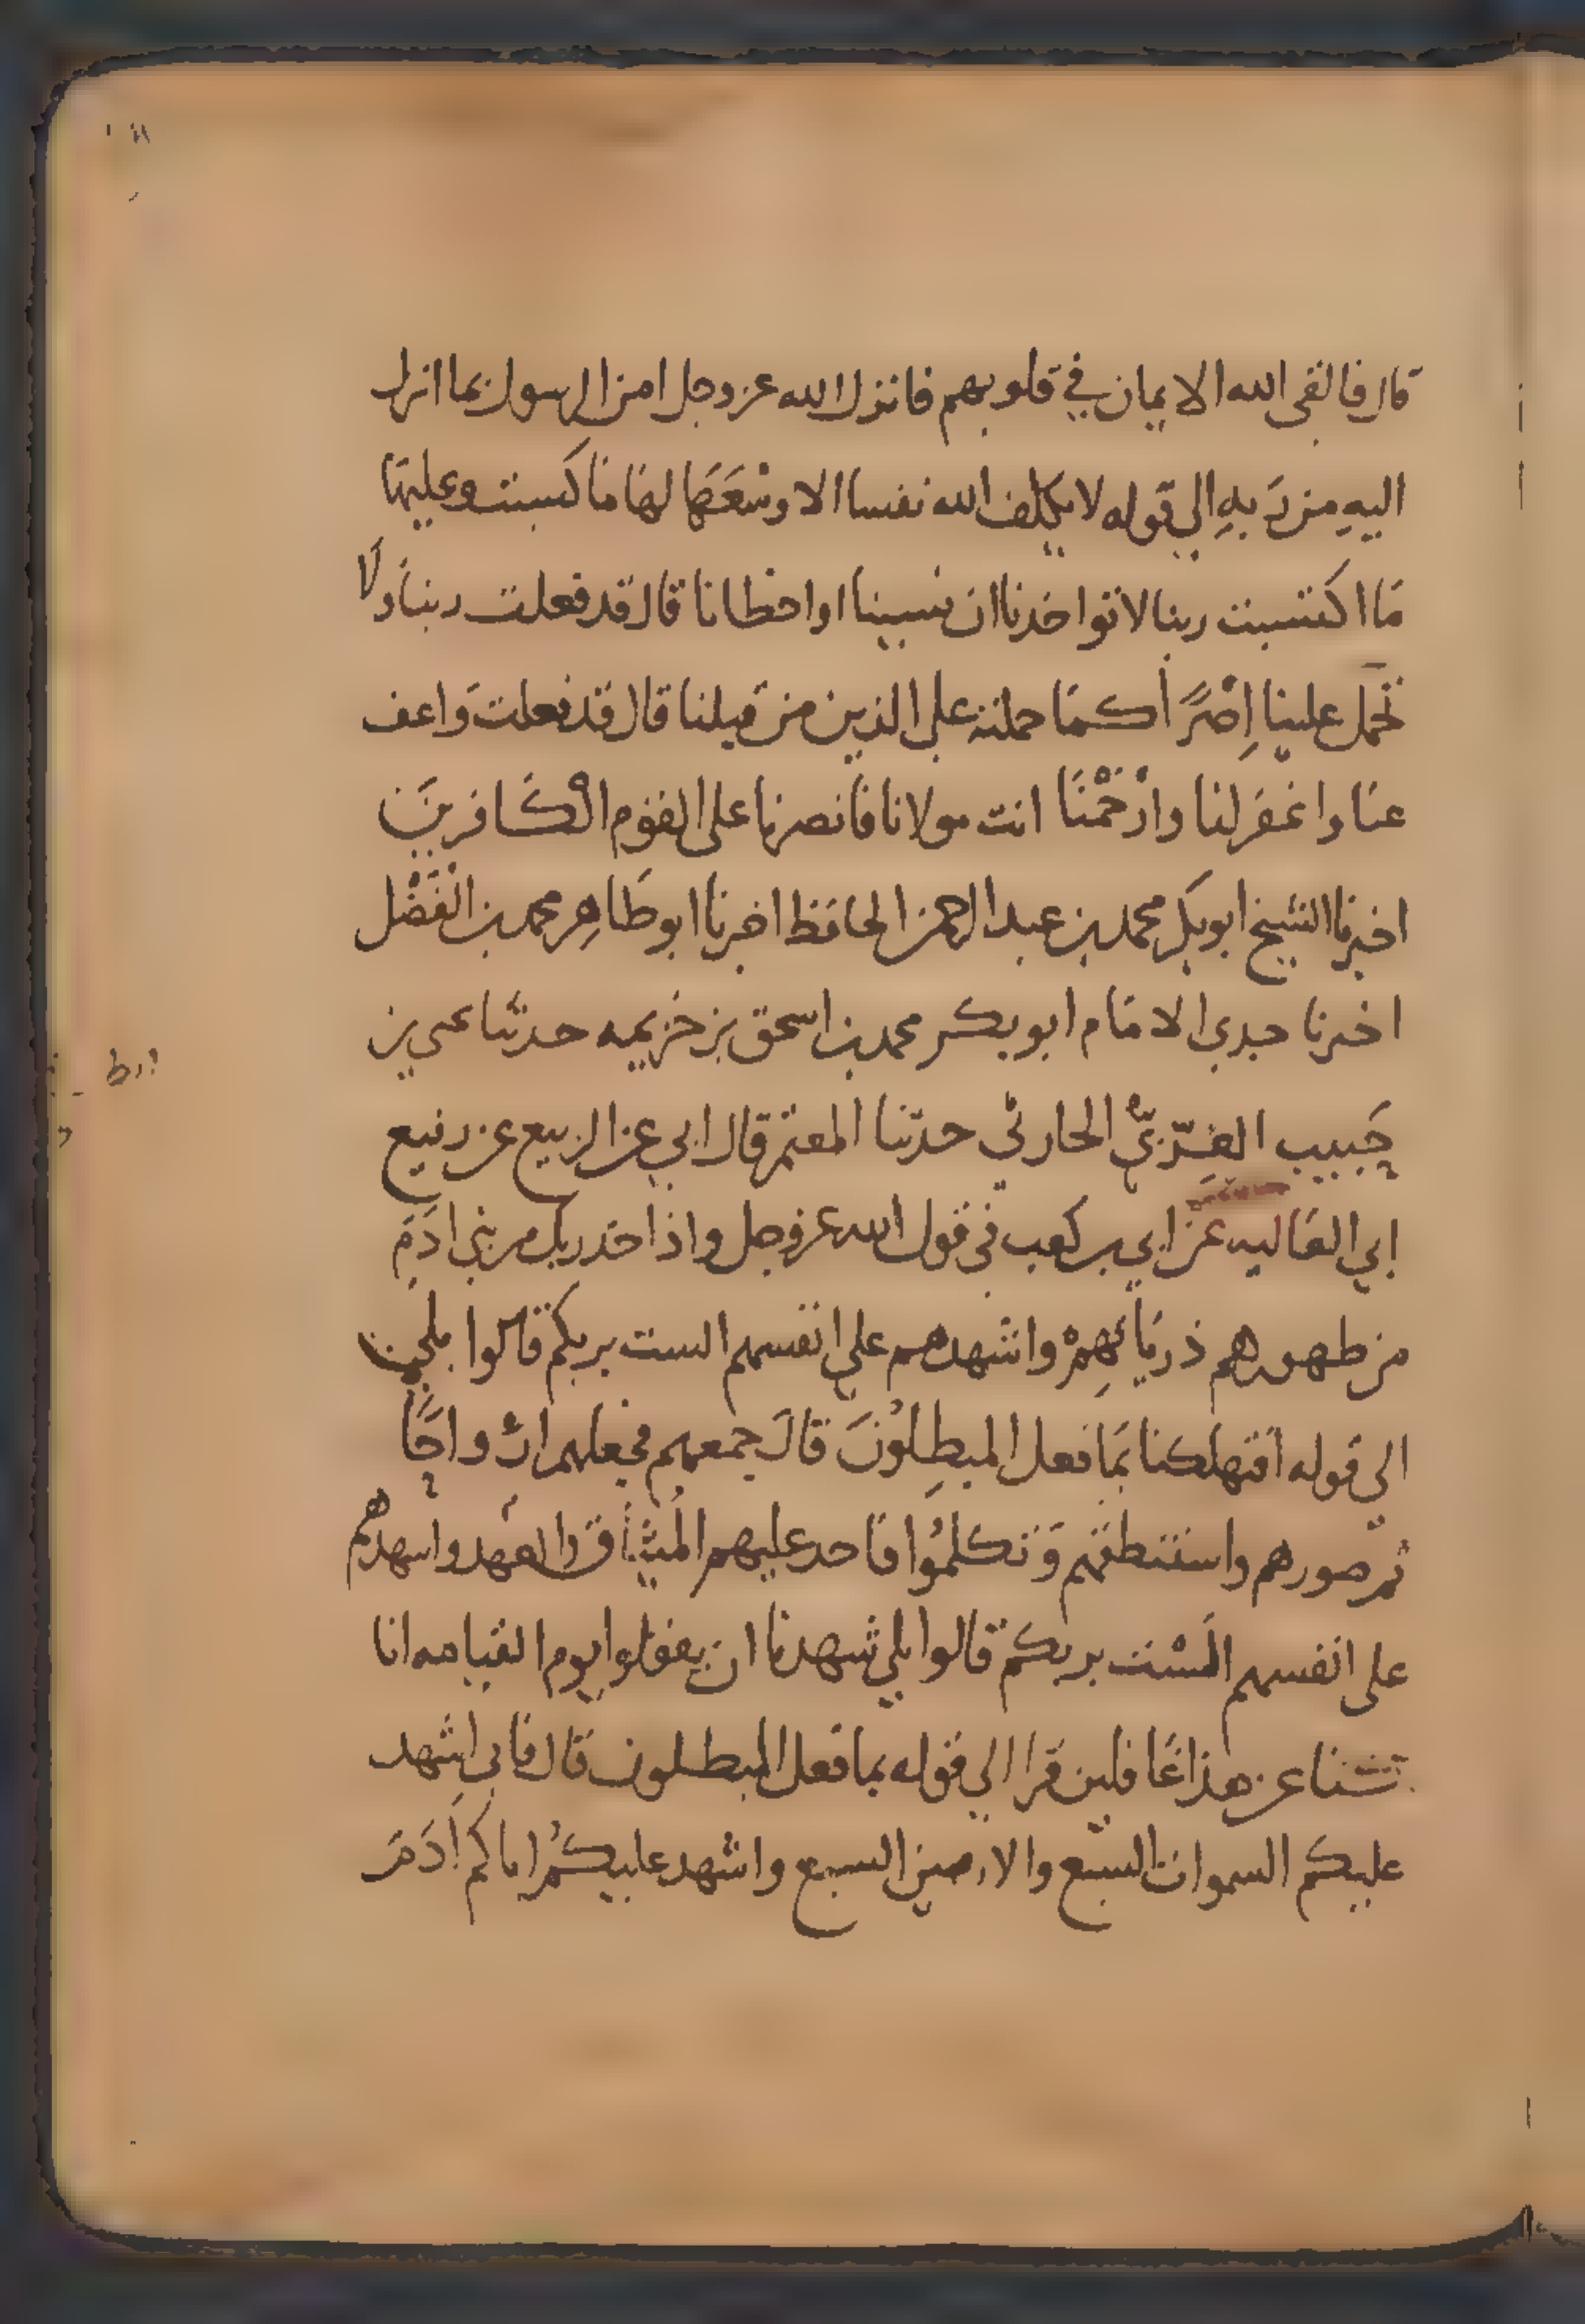 قال فالقى الله الايمان في قلوبهم فانزل الله عز وجل امن الرسول بما انزل
اليه من ربه الي قوله لا يكلف الله نفسا الا وسعها لها ما كسبت وعليها
ما اكتسبت ربنا لا تواخذنا ان نسينا او اخطانا قال قد فعلت ربنا ولا
تحمل علينا إصرًا كما حملته علي الذين من قبلنا قال قد فعلت واعف
عنا واغفر لنا وارْحَمْنَا انت مولانا فانصرنا على القوم الكافرين
اخبرنا الشيخ ابو بكر محمد بن عبد الرحمن الحافظ اخبرنا ابو طاهر محمد بن الفَضْل
اخبرنا جدي الامام ابو بكر محمد بن اسحق بن خزيمه حدثنا يحيى بن
حَبيب الحارثي حدثنا المعتمر قال ابي عن الربيع عن رفيع
ابي العاليه عن ابي بن كعب في قول الله عز وجل واذ اخذ ربك من بني ادم
من ظهورهم ذرياتهم واشهدهم علي انفسهم الست بربكم قالوا بلي
الي قوله افتهلكنا بما فعل المبطِلُونَ قال جمعهم فجعلهم ازواجًا
ثم صورهم واستنطقهم وتكلموا فاخذ عليهم الميثاق والعهد واشهدهم
على انفسهم الَسْت بربكم قالوا بلي شهدنا ان يقولوا يوم القيامه انا
كنا عن هذا غافلين قرا الي قوله بما فعل المبطلون قال فاني اشهد
عليكم السموات السبع والارضين السبع واشهد عليكم اباكم ادم